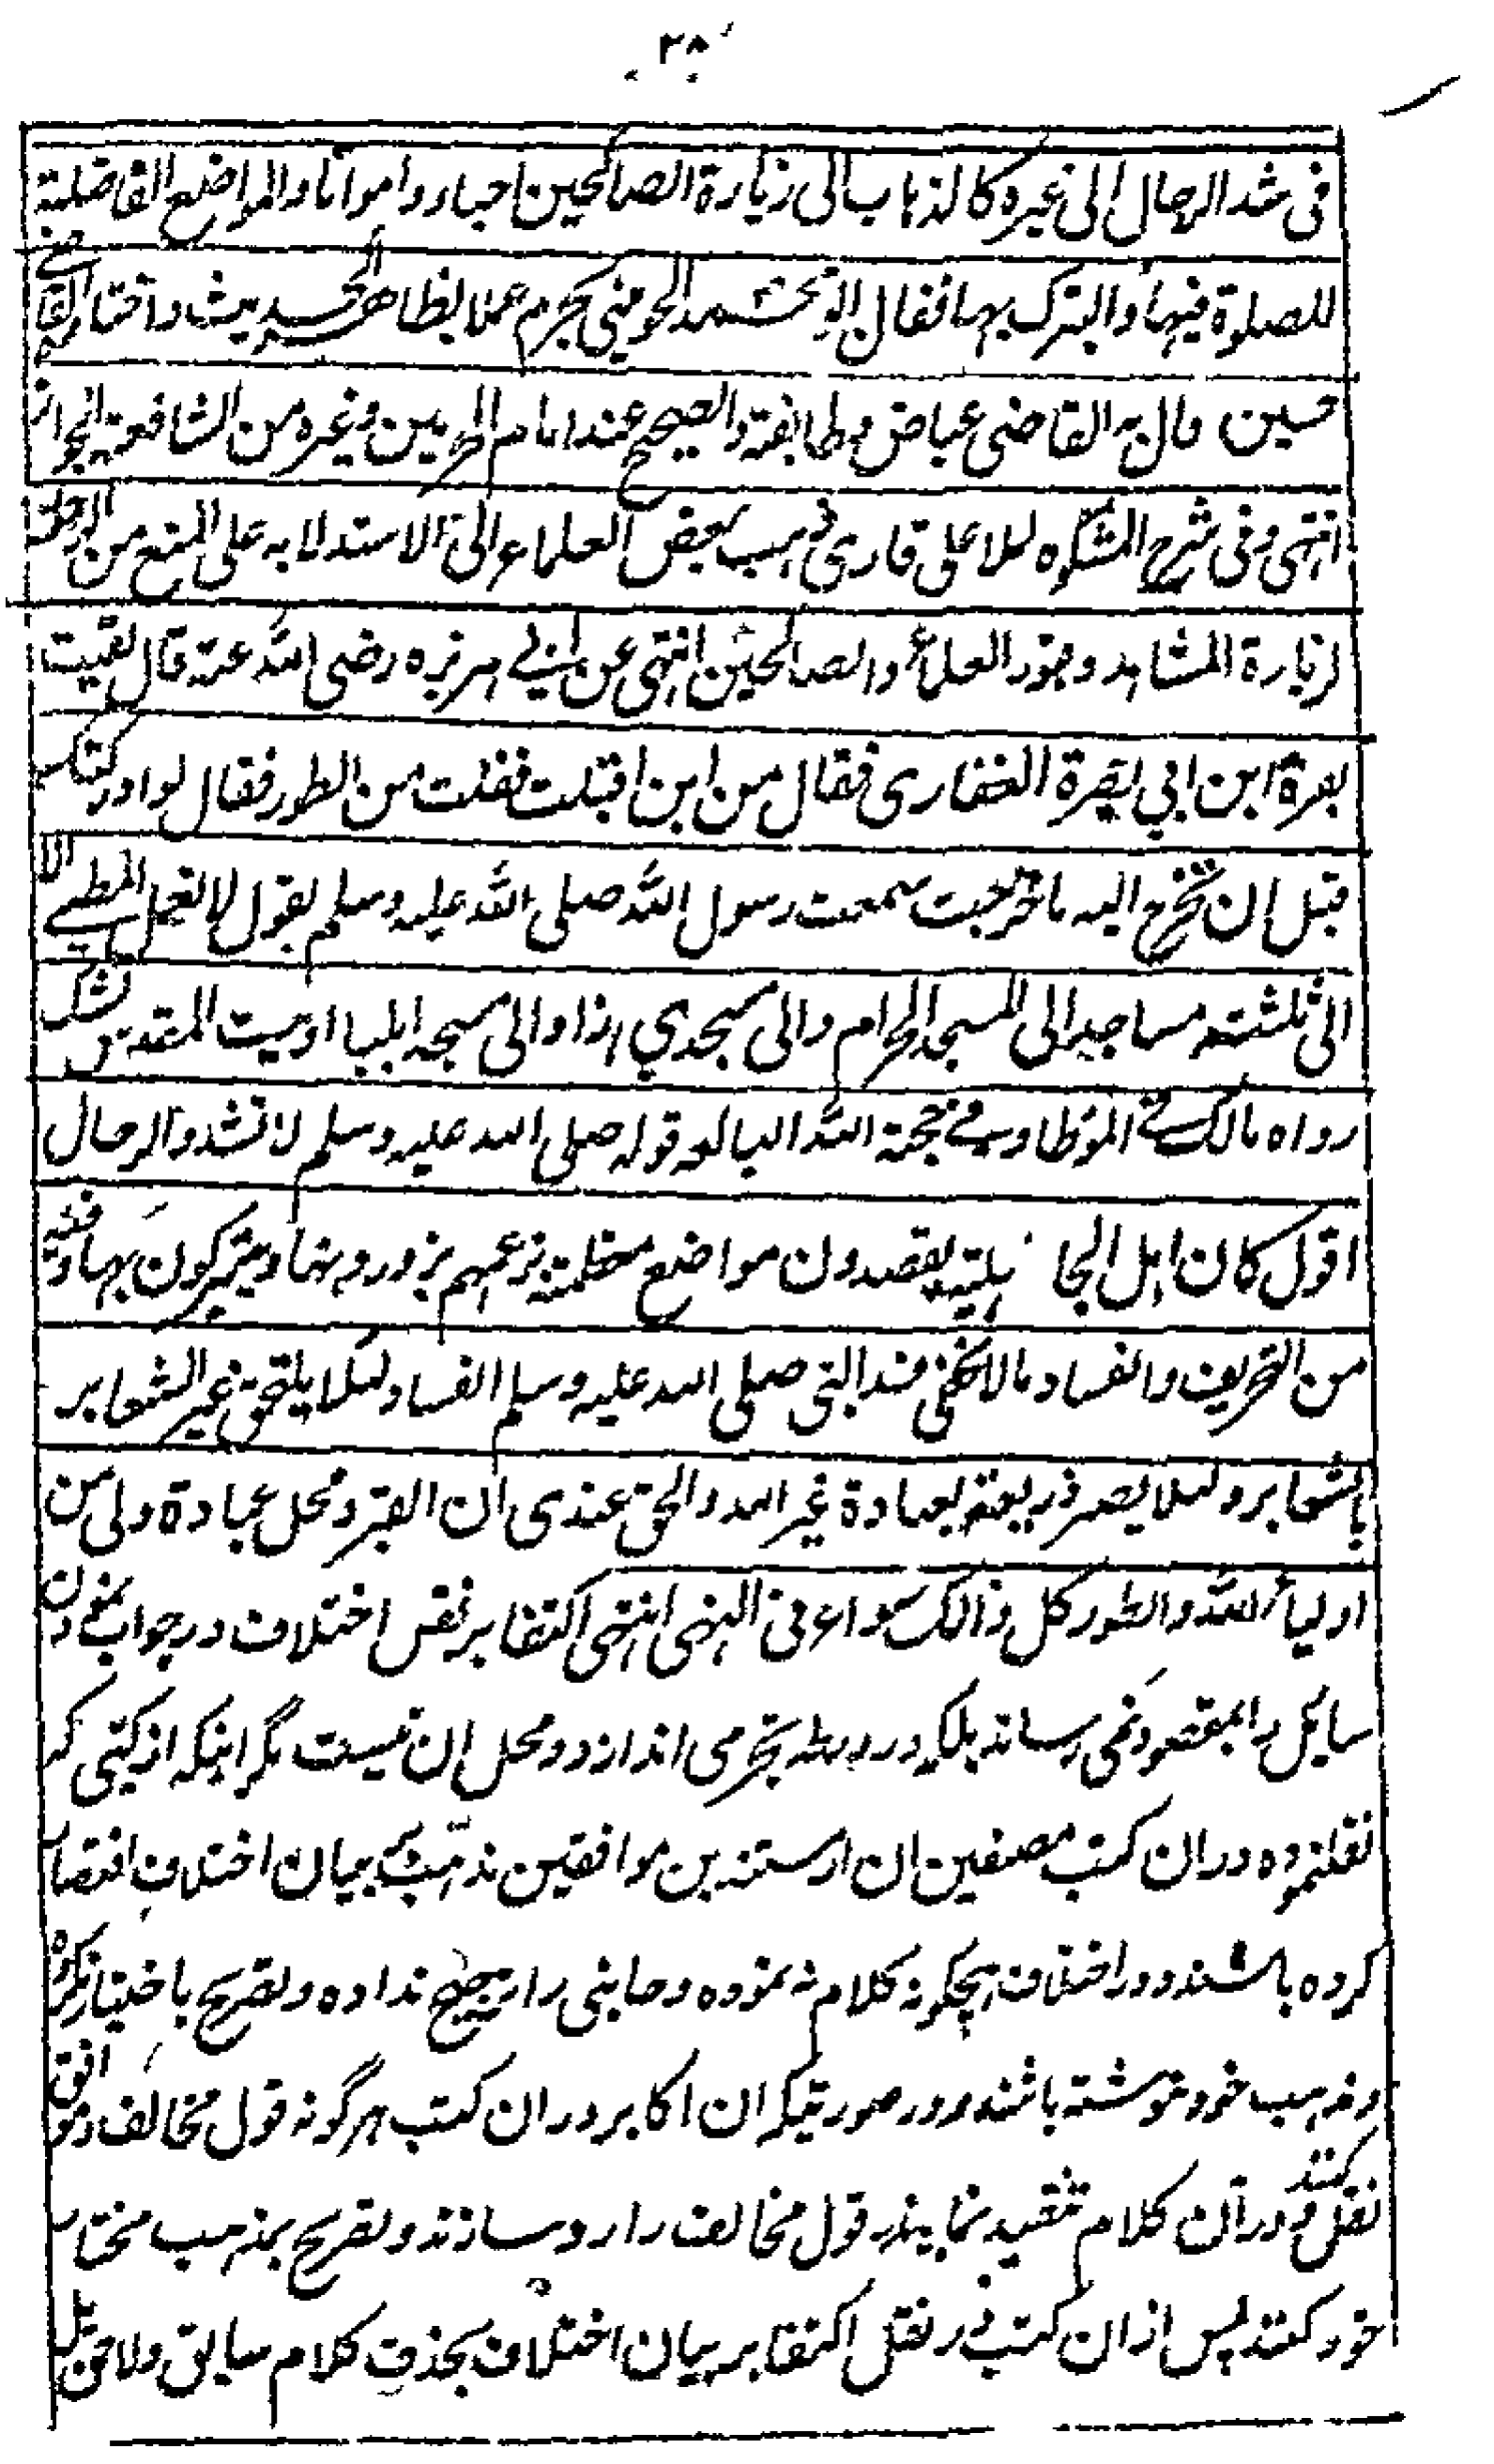 ٢٨
فى شد الرحال الى غيره كالذهاب الى زيارة الصالحين احياء وامواتا والمواضع الفاضلة
للصلوة فيها والتبرك بها فقال ابو محمد الجوينى يحرم عملا بظاهر الحديث واختاره القاضى
حسين وقال به القاضى عياض وطايفة والصحيح عند امام الحرمين وغيره من الشافعية الجواز
انتهى وفى شرح المشكوه لملا على قارى ذهب بعض العلماء الى الاستدلال به على المنع من الرحلة
لزيارة المشاهد وقبور العلماء والصالحين انتهى عن ابي هريره رضى الله عنه قال لقيت
بصرة ابن ابي بصرة الغفارى فقال من اين اقبلت فقلت من الطور فقال لو ادركتك
قبل ان تخرج اليه ما خرجت سمعت رسول الله صلى الله عليه وسلم يقول لا تعمل المطى الا
الى ثلثة مساجد الى المسجد الحرام والى مسجدي هذا والى مسجد ايليا او بيت المقدس يشك
رواه مالك فے المؤطا وفے حجة الله البالغه قوله صلى الله عليه وسلم لا تشدو الرحال
اقول كان اهل الجاهلية يقصدون مواضع معظمة بزعمهم يزورونها ويتبركون بها وفيه
من التحريف والفساد مالا يخفى فسد النبى صلى الله عليه وسلم الفساد لئلا يلتحق غير الشعاير
بالشعاير ولئلا يصير ذريعة لعبادة غير الله والحق عندى ان القبر ومحل عبادة ولى من
اولياء الله والطور كل ذالك سواء فى النهى انتهى اكتفا بر نفس اختلاف در جواب نمودن
سايل را بمقصود نمى رساند بلكه در ورطه تحير مى اندازد ومحل ان نيست مگر اينكه از كتبى كه
نقلنموده دران كتب مصنفين ان از مستندين موافقين مذهبش بر بيان اختلاف اقتصار
كرده باشند ودر اختلاف هيچگونه كلام نه نموده وجانبى را ترجيح نداده وتصريح باختيار نكرده
ومذهب خود نوشته باشند ودر صورتيكه ان اكابر دران كتب هرگونه قول مخالف وموافق
نقل كنند ودرآن كلام تنقيد نمايند وقول مخالف را رد سازند وتصريح بمذهب مختار
خود كنند پس از ان كتب در نقل اكتفا بر بيان اختلاف بحذف كلام سابق ولاحق